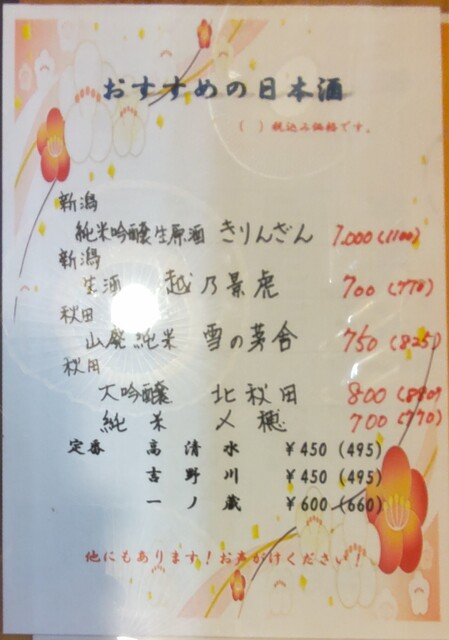 おすすめの日本酒
（ ）税込み価格です。
新潟
純米吟醸生原酒 きりんざん 1.000(1100)
新潟
生酒 越乃景虎 700(770)
秋田
山廃純米 雪の茅舎 750(825)
秋田
大吟醸 北秋田 800(880)
純米 〆穂 700(770)
定番 高清水 ￥450(495)
吉野川 ￥450(495)
一ノ蔵 ￥600(660)
他にもあります！お声がけください！